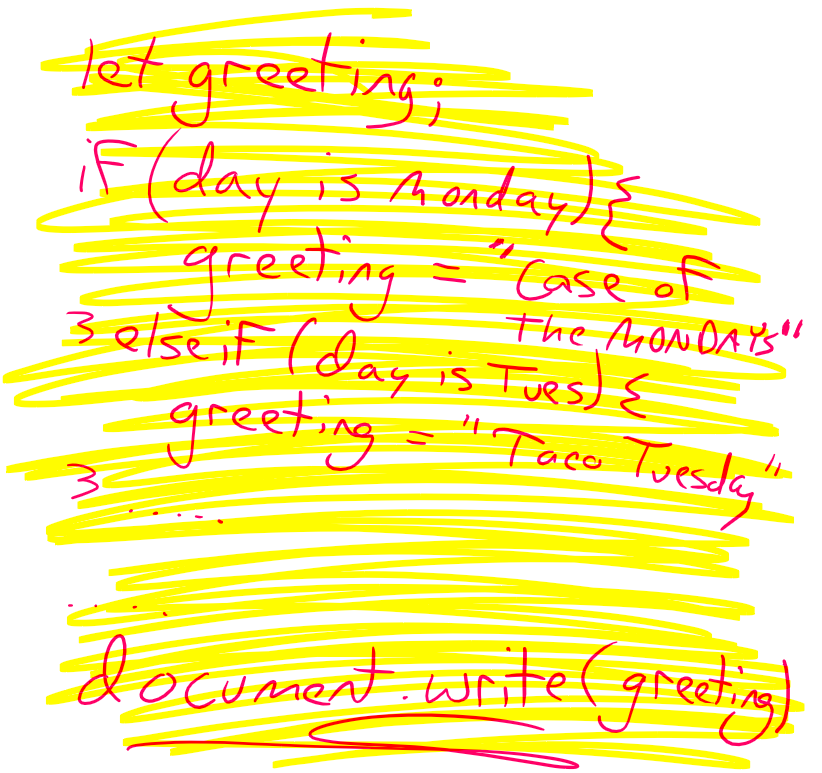 let greeting;
if (day is Monday) {
greeting = "Case of
the MONDAYS"
} else if (day is Tues) {
greeting = "Taco Tuesday"
}
.....
.....
document.write(greeting)